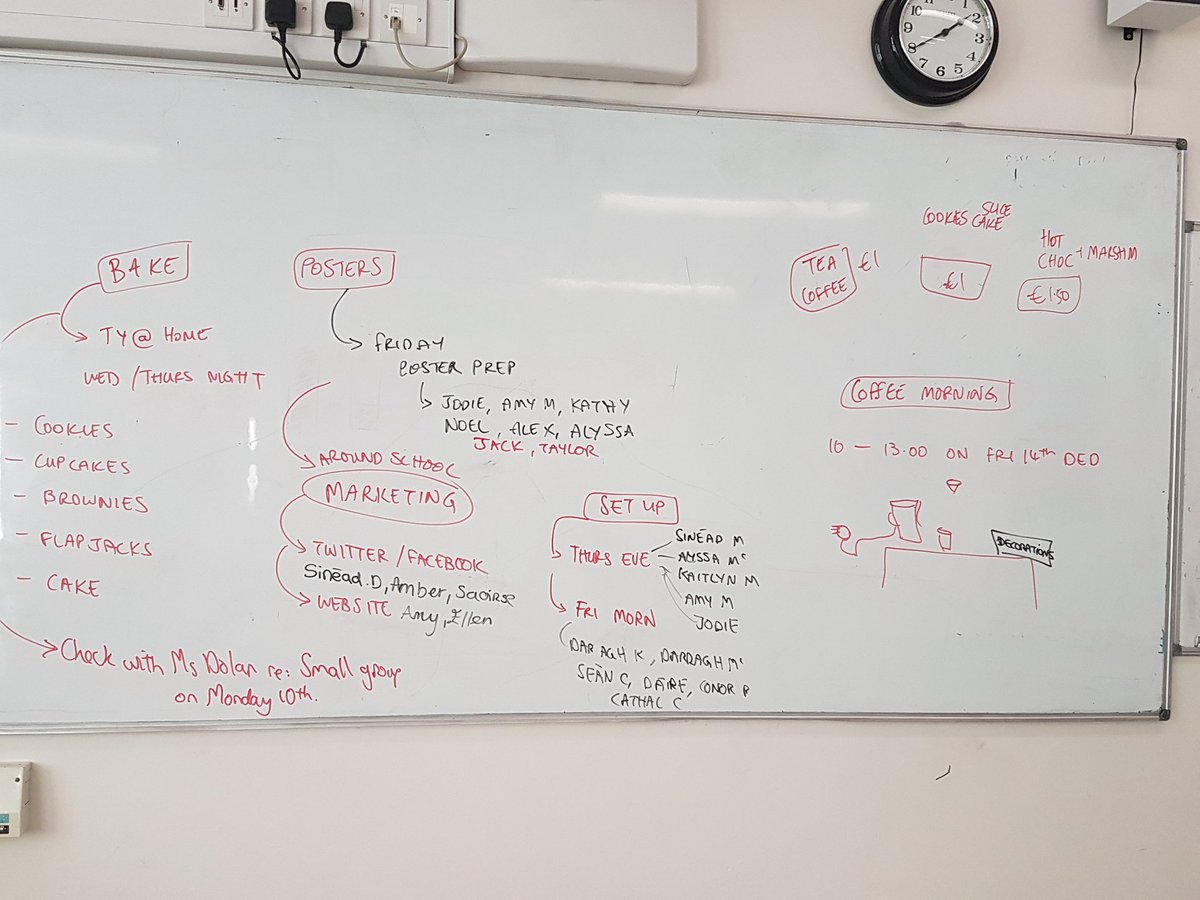 BAKE
TY @ HOME
WED / THURS NIGHT
- COOKIES
- CUPCAKES
- BROWNIES
- FLAPJACKS
- CAKE
Check with Ms Dolan re: Small group
on Monday 10th.
POSTERS
FRIDAY
POSTER PREP
JODIE, AMY M, KATHY
NOEL, ALEX, ALYSSA
JACK, TAYLOR
AROUND SCHOOL
MARKETING
TWITTER / FACEBOOK
Sinéad.D, Amber, Saoirse
WEBSITE Amy, Ellen
SET UP
THURS EVE
SINÉAD M
ALYSSA Mc
KAITLYN M
AMY M
JODIE
FRI MORN
DARAGH K, DARDAGH Mc
SEÁN C, DÁIRE, CONOR P
CATHAL C
TEA
COFFEE
£1
COOKES SLICE
CAKE
£1
HOT
CHOC + MARSHM
£1.50
COFFEE MORNING
10 - 13.00 ON FRI 14th DEC
DECORATIONS
11
2
10
3
9
4
8
5
7
6